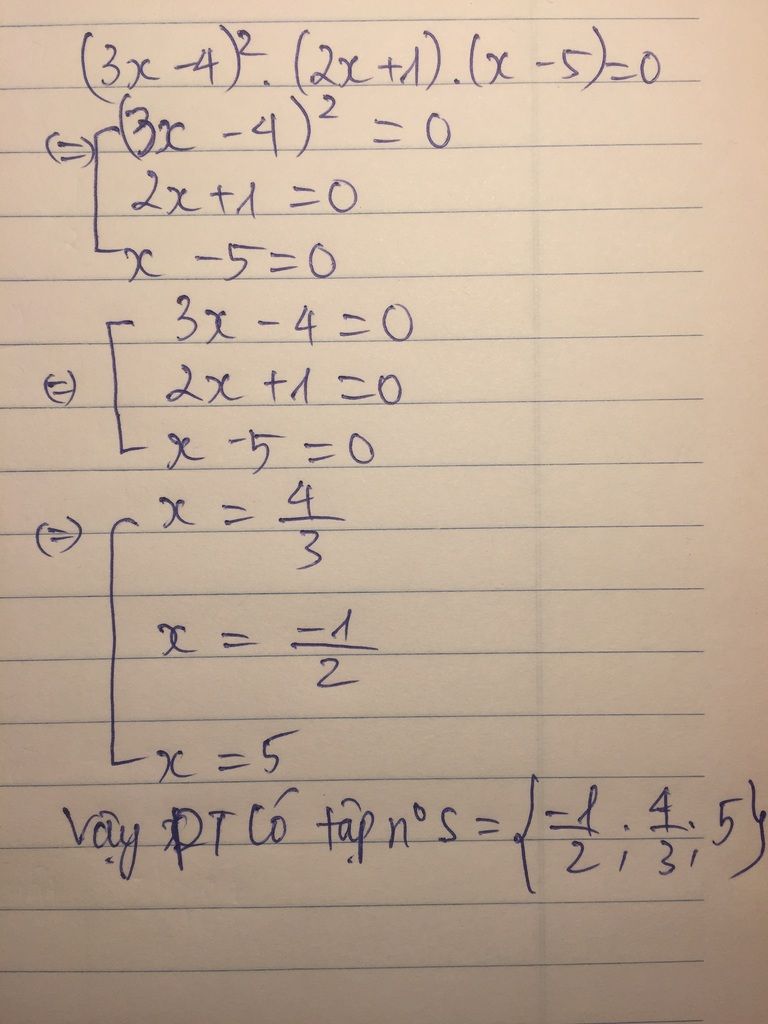 (3x - 4)². (2x + 1).(x - 5) = 0
(=) [ (3x - 4)² = 0
2x + 1 = 0
x - 5 = 0
(=) [ 3x - 4 = 0
2x + 1 = 0
x - 5 = 0
(=) [ x = 4/3
x = -1/2
x = 5
Vậy PT có tập nº S = {-1/2 ; 4/3 ; 5}